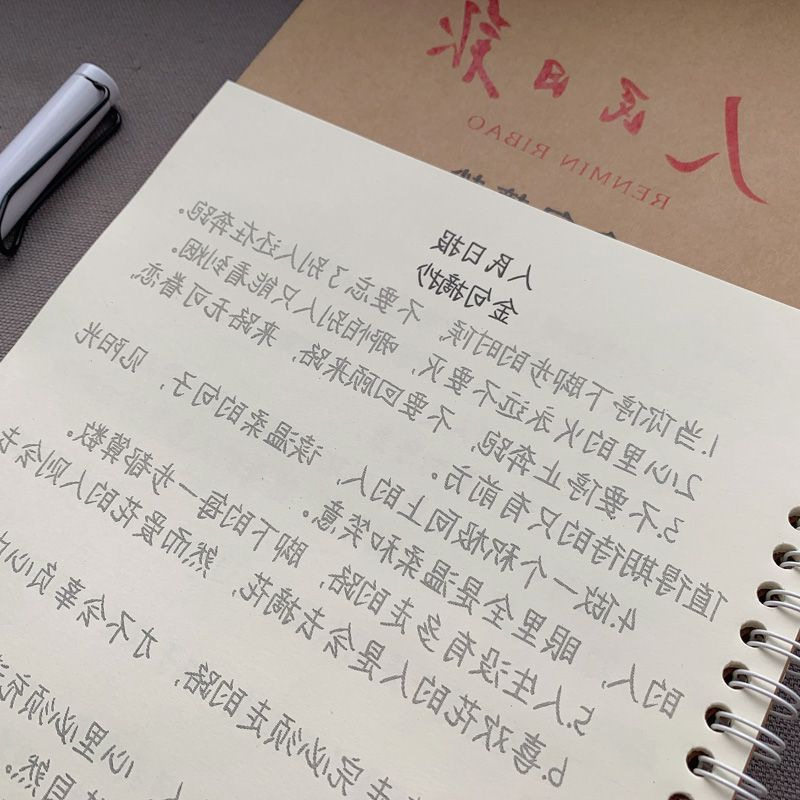 人民日报
RENMIN RIBAO
人民日报
金句摘抄
1.当你停下脚步的时候，不要忘了别人还在奔跑。
2.心里的火永远不要灭，哪怕别人只能看到烟。
3.不要停止奔跑，不要回顾来路，来路无可眷恋，
值得期待的只有前方。
4.做一个积极向上的人，读温柔的句子，见阳光
的人，眼里全是温柔和笑意。
5.人生没有多走的路，脚下的每一步都算数。
6.喜欢花的人是会去摘花，然而爱花的人则会去
走完必须走的路，才不会辜负心中
心里必须
自然。